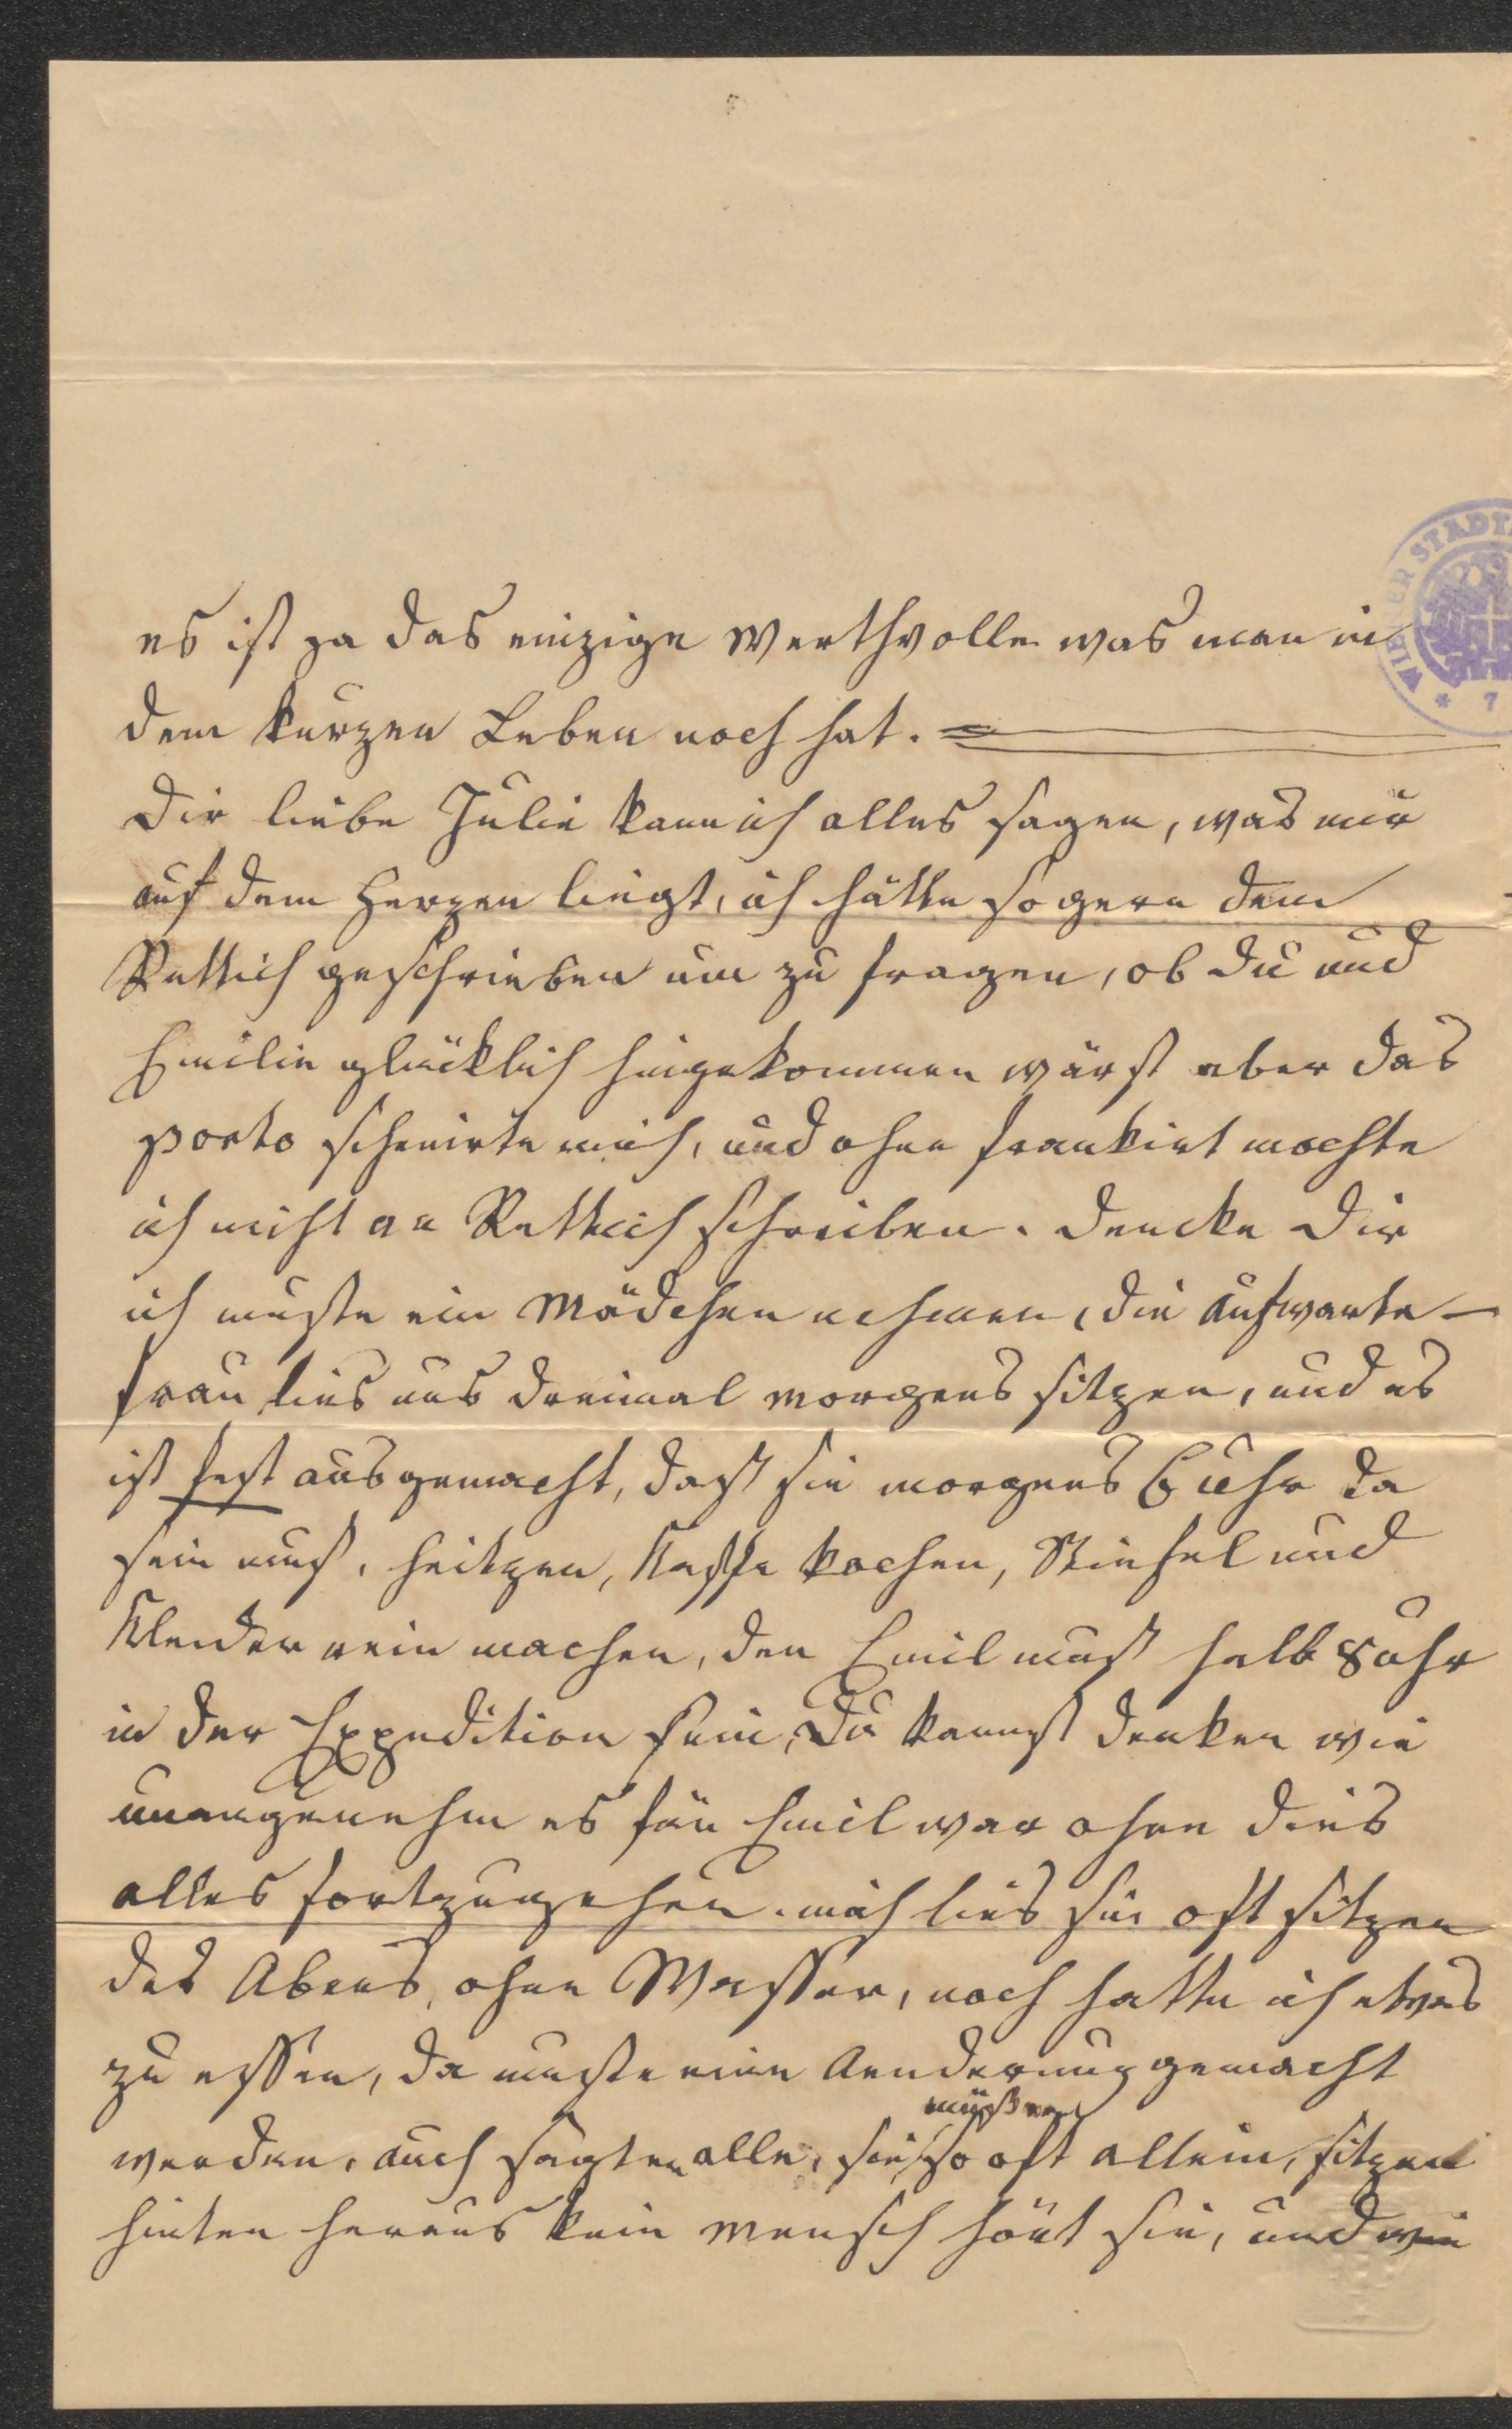 es ist ja das einzige werthvolle was man in
dem kurzen Leben noch hat.
Dir liebe Julie kann ich alles sagen, was mir
auf dem Herzen liegt, ich hätte so gern dem
Rettich geschrieben um zu fragen, ob Du und
Emilie glücklich hingekommen wärst aber das
porto schenirte mich, und ohne frankirt mochte
ich nicht an Rettich schreiben. Dencke Dir
ich muste ein Mädchen nehmen, die Aufwarte-
frau lies uns dreimal morgens sitzen, und es
ist fest ausgemacht, dast sie morgens 6 uhr da
sein must, heitzen, Kaffe kochen, Stiefel und
Kleider rein machen, den Emil must halb 8 uhr
in der Expedition sein, Du kannst denken wie
unangenehm es für Emil war ohne dies
alles fortzugehen. mich lies sie oft sitzen
des Abens, ohne Wasser, noch hatte ich etwas
zu essen, da muste eine Aenderung gemacht
müßen
werden, auch sagten alle, sie so oft allein, sitzen
hinten heraus kein mensch hört sie, und wie
WIENER STADT
* 7